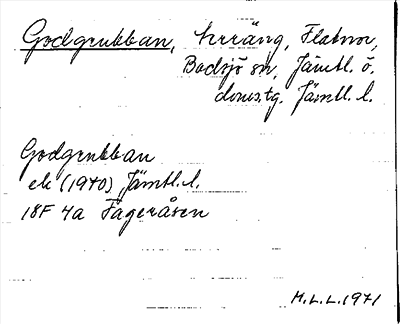 Godgrubban, terräng, Flatnor,
Bodsjö sn, Jämtl. ö.
doms.tg. Jämtl. l.
Godgrubban
ek (1940) Jämtl. l.
18F 4a Fageråsen
M.L.L. 1971